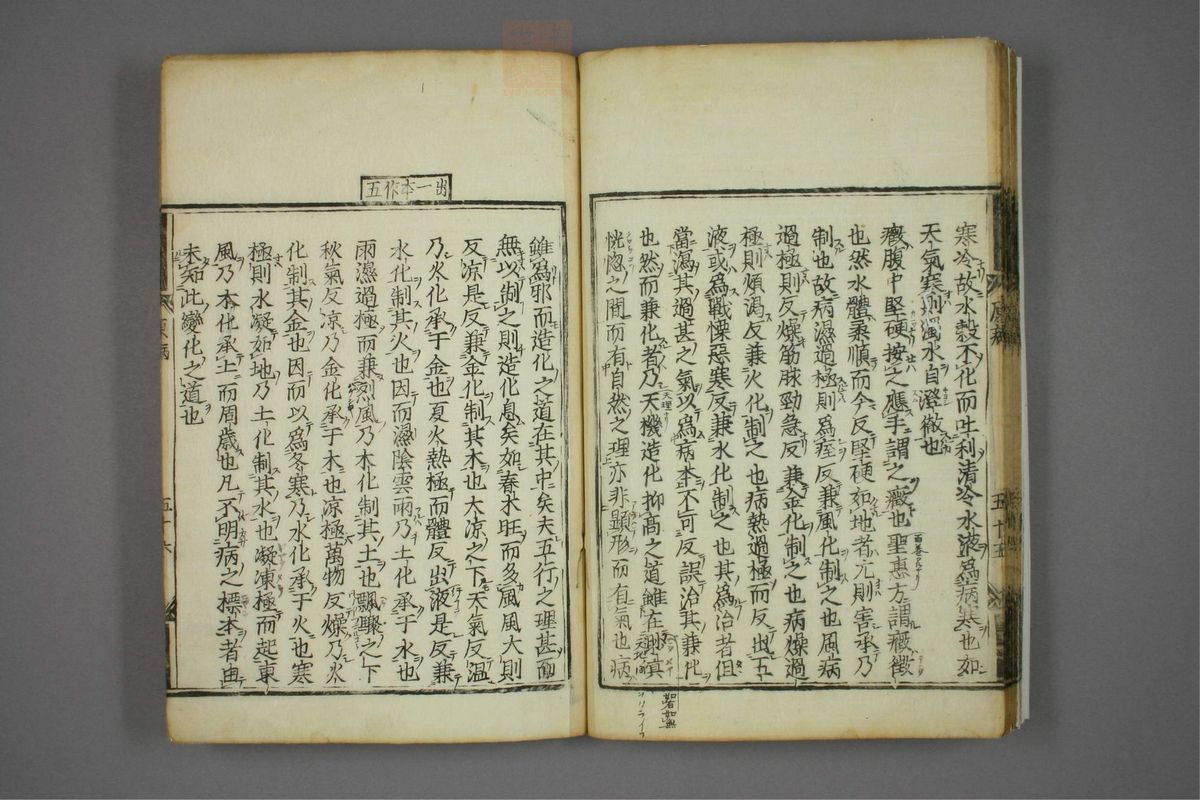 寒冷故水穀不化而吐利清冷水液爲病寒也如
天氣寒則濁水自澄徹也
癥腹中堅硬按之應手謂之癥也聖惠方謂癥徵
也然水體柔順而今反堅硬如地者亢則害承乃
制也故病濕過極則爲痓反兼風化制之也風病
過極則反燥筋脉勁急反兼金化制之也病燥過
極則煩渴反兼火化制之也病熱過極而反出五
液或爲戰慄惡寒反兼水化制之也其爲治者俚
當瀉其過甚之氣以爲病本不可反誤治其兼化
也然而兼化者乃天機造化抑高之道雖在渺冥
恍惚之間而有自然之理亦非顯形而有氣也病
五十五
出一本作五
雖爲邪而造化之道在其中矣夫五行之理甚而
無以制之則造化息矣如春木旺而多風風大則
反涼是反兼金化制其木也大涼之下天氣反温
乃火化承于金也夏火熱極而體反出液是反兼
水化制其火也因而濕陰雲雨乃土化承于水也
雨濕過極而兼烈風乃木化制其土也飄驟之下
秋氣反凉乃金化承于木也涼極萬物反燥乃火
化制其金也因而以爲冬寒乃水化承于火也寒
極則水凝如地乃土化制其水也凝凍極而起東
風乃木化承土而周歲也凡不明病之標本者由
未知此變化之道也